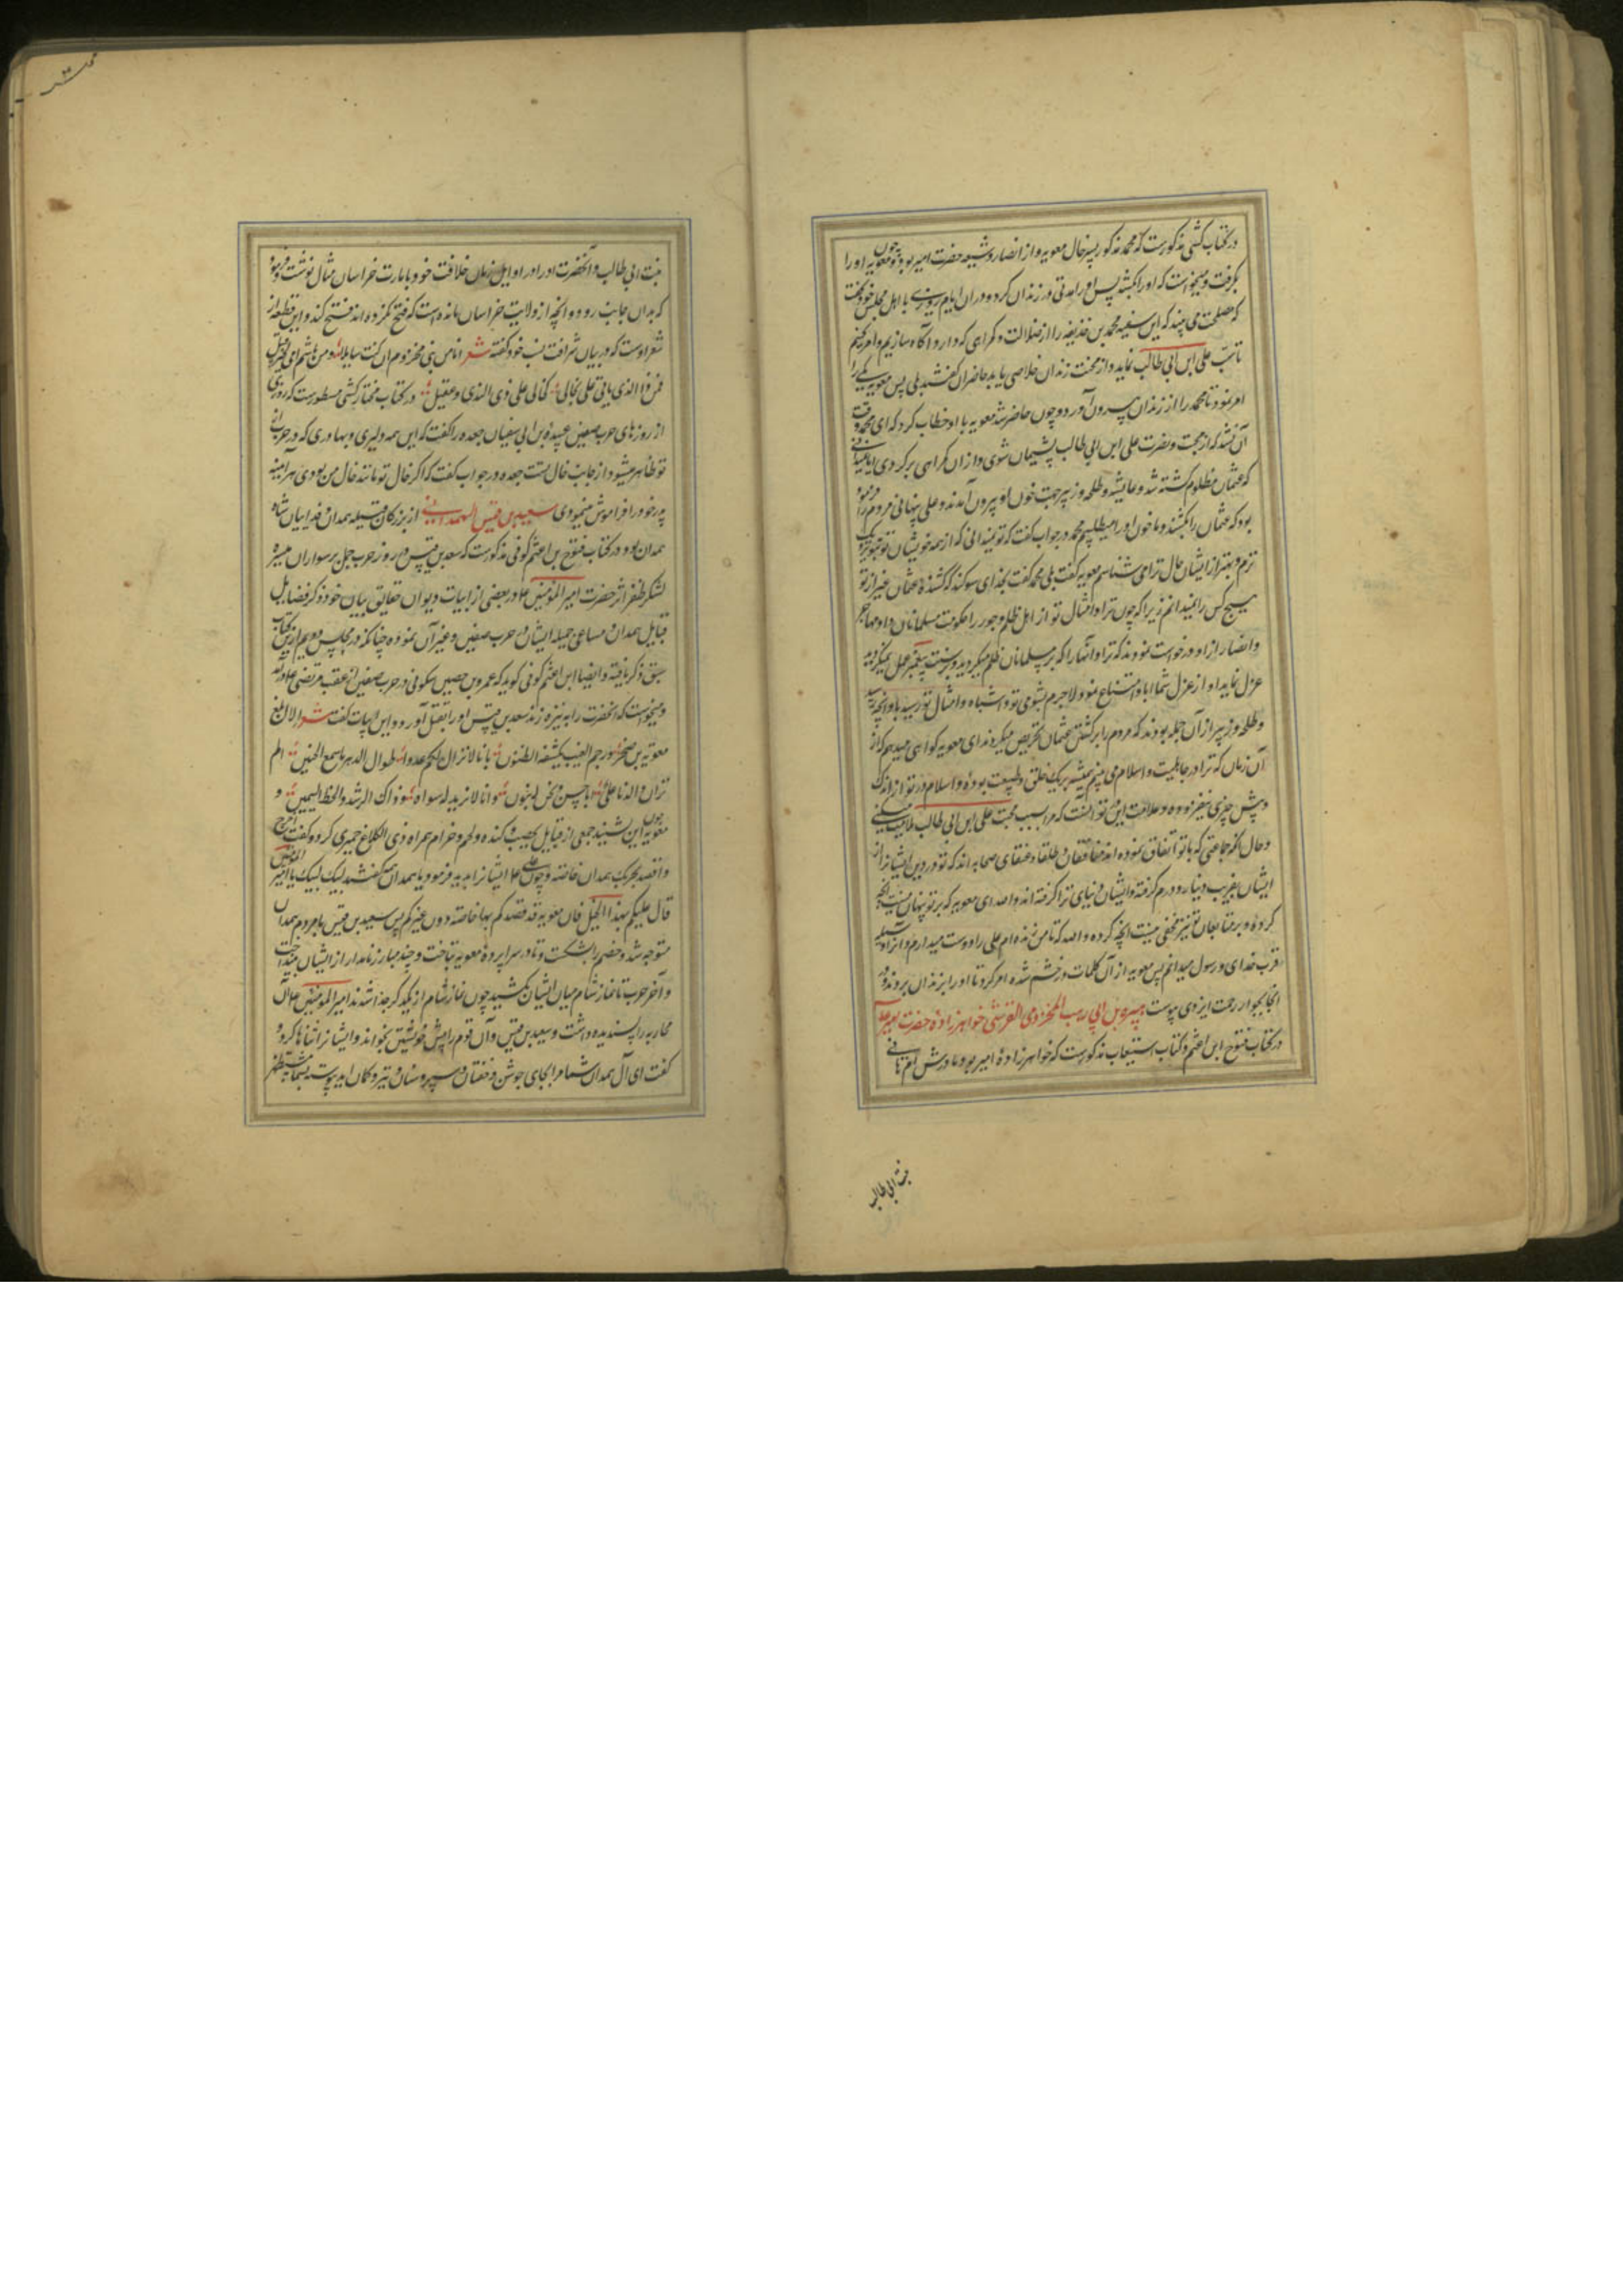 در کتاب کشی مذکورست که محمد مذکور پسر خال معویه و از انصار و شیعه حضرت امیر بود و چون معویه او را
بگرفت و میخواست که او را بکشد پس او را مدتی در زندان کرد و در ان ایام روزی با اهل مجلس خود گفت
که مصلحت می بیند که این سفیه محمد بن حذیفه را از ضلالت و گمراهی که دارد آگاه سازیم و امر کنیم
تا سب علی ابن ابی طالب نماید و از محنت زندان خلاصی یابد حاضران گفتند بلی پس معویه یکی را
امر نمود تا محمد را از زندان بیرون آورد و چون حاضر شد معویه با او خطاب کرد که ای محمد وقت
آن نشد که از محبت و نصرت علی ابن ابی طالب پشیمان شوی و از ان گمراهی برگردی ایا نمیدانی
که عثمان مظلوم کشته شد و عایشه و طلحه و زبیر جهت خون او بیرون آمدند و علی پنهانی مردم را فرموده
بود که عثمان را بکشند و ما خون او را میطلبیم محمد در جواب گفت که تو میدانی که از همه خویشان تو بتو نزدیک
ترم و بهتر از ایشان حال ترا می شناسم معویه گفت بلی محمد گفت بخدای سوگند که کشنده عثمان غیر از تو
هیچ کس را نمیدانم زیرا که چون ترا و امثال تو از اهل ظلم و جور را حکومت مسلمانان داد و مهاجر
و انصار از او درخواست نمودند که ترا و آنها را که بر مسلمانان ظلم میکردید و بر سنت پیغمبر عمل نمیکردید
عزل نماید او از عزل شما ابا و امتناع نمود لاجرم بشومی تو و اشباه و امثال تو رسید باو انچه رسید
و طلحه و زبیر از آن جمله بودند که مردم را بر کشتن عثمان تحریص میکردند ای معویه گواهی میدهم که از
آن زمان که ترا در جاهلیت و اسلام می بینم همیشه بر یک خلق و طبیعت بوده و اسلام در تو از اندک
و بیش چیزی نیفزوده و علامت این در تو آنست که مرا بسبب محبت علی ابن ابی طالب ملامت میکنی
و حال انکه جماعتی که با تو اتفاق نموده اند منافقان و طلقا و عتقای صحابه اند که تو در دین ایشانرا از
ایشان بفریب دینار و درم گرفته و ایشان دنیای ترا گرفته اند والله ای معویه که بر تو پنهان نیست انچه
کرده و بر متابعان تو نیز مخفی نیست انچه کرده والله که تا من زنده ام علی را دوست میدارم و آنرا وسیله
قرب خدای و رسول میدانم پس معویه از آن کلمات در خشم شده امر کرد تا او را بزندان بردند و در
انجا بجوار رحمت ایزدی پیوست هبیره بن ابی وهب المخزومی القرشی خواهرزاده حضرت امیر
در کتاب فتوح ابن اعثم و کتاب استیعاب مذکورست که خواهرزاده امیر بود و مادرش ام هانی
بنت ابی طالب
بنت ابی طالب و آنحضرت او را در اوایل زمان خلافت خود بامارت خراسان مثال نوشت و فرمود
که بدان جانب رود و انچه از ولایت خراسان مانده است که فتح نکرده اند فتح کند و این قطعه از
شعر اوست که در بیان شرافت نسب خود گفته شعر انا من بنی مخزوم ان کنت سایلا و من هاشم امی لخیر قبیل
فمن ذا الذی یاتی علی بخاله کخالی علی ذی الندی و عقیل در کتاب مختار کشی مسطورست که روزی
از روزهای حرب صفین عتبه بن ابی سفیان جعده را گفت که این همه دلیری و بهادری که در حرب از
تو ظاهر میشود از جانب خال تست جعده در جواب گفت که اگر خال تو مانند خال من بودی هر آینه
پدر خود را فراموش مینمودی سعید بن قیس الهمدانی از بزرگان قبیله همدان و فداییان شاه
همدان بود در کتاب فتوح بن اعثم کوفی مذکورست که سعد بن قیس در روز حرب جمل بر سواران میسره
لشکر ظفر اثر حضرت امیر المؤمنین علا در بعضی از ابیات دیوان حقایق بیان خود ذکر فضایل
قبایل همدان و مساعی جمیله ایشان در حرب صفین و غیر آن نموده چنانکه در مجلس دویم ازین کتاب
سبق ذکر یافته و ایضا ابن اعثم کوفی گوید که عمرو بن حصین سکونی در حرب صفین از عقب مرتضی علا درآمد
و میخواست که انحضرت را به نیزه زند سعد بن قیس او را بقتل آورد و این ابیات گفت شعر الا ابلغ
معویه بن صخر و رجم الغیب یکشفه الظنون بانا لا نزال لکم عدوا طوال الدهر ما سمع الحنین الم
تر ان الدنا علی ابا حسن نحن له بنون و انا لا نرید له سواه و ذاک الرشد و الحظ الیمین و
چون معویه این بشنید جمعی از قبایل یحصب و کنده و لخم و جذام همراه ذی الکلاع حمیری کرد و گفت اخرج
واقصد بحربک همدان خاصه و چون علی علا ایشانرا بدید فرمود یا همدان گفتند لبیک لبیک یا امیر المؤمنین
قال علیکم بهذا الخیل فان معویه قد قصدکم بها خاصه دون غیرکم پس سعید بن قیس با مردم همدان
متوجه شد و خصم را بشکست و تا در سراپرده معویه بتاخت و چند مبارز نامدار از ایشان بینداخت
و آخر حرب تا نماز شام میان ایشان بکشید چون نماز شام از یکدیگر جدا شدند امیر المؤمنین علا آن
محاربه را پسندیده داشت و سعید بن قیس و آن قوم را پیش خویشتن بخواند و ایشانرا ثناها کرد و
گفت ای آل همدان شما مرا بجای جوشن و خفتان و سپر و سنان و تیر و کمان اید پیوسته بشما مستظهر